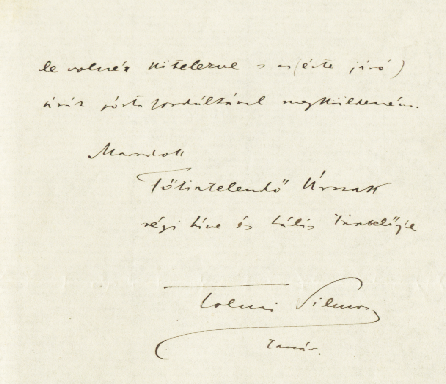 le volnék kötelezve s az (érte járó)
árát posta fordultával megküldeném.
Maradok
Főtisztelendő Úrnak
régi híve és hálás tisztelője
Tolnai Vilmos
tanár.